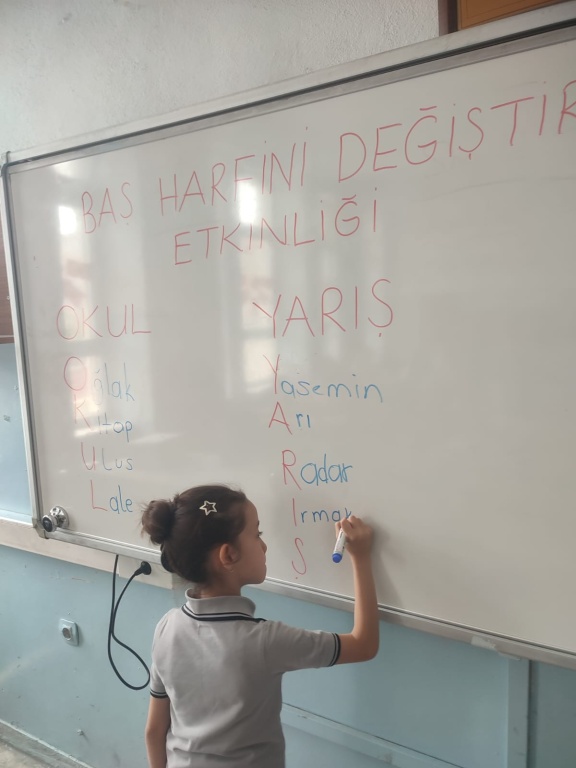 BAŞ HARFİNİ DEĞİŞTİR
ETKİNLİĞİ
OKUL
Oğlak
Kitap
Ulus
Lale
YARIŞ
Yasemin
Arı
Radar
Irmak
Ş